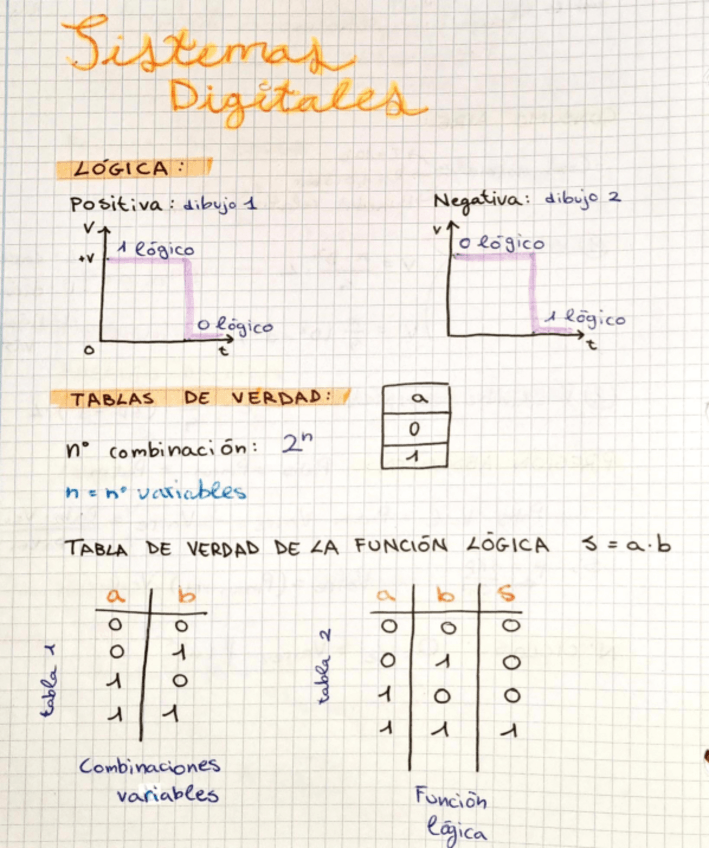 Sistemas
Digitales
LÓGICA:
Positiva: dibujo 1
Negativa: dibujo 2
V
+V
1 lógico
0 lógico
0
t
V
0 lógico
1 lógico
t
TABLAS DE VERDAD:
a
0
1
nº combinación: 2ⁿ
n = nº variables
TABLA DE VERDAD DE LA FUNCIÓN LÓGICA S = a·b
tabla 1
a b
0 0
0 1
1 0
1 1
Combinaciones
variables
tabla 2
a b S
0 0 0
0 1 0
1 0 0
1 1 1
Función
lógica